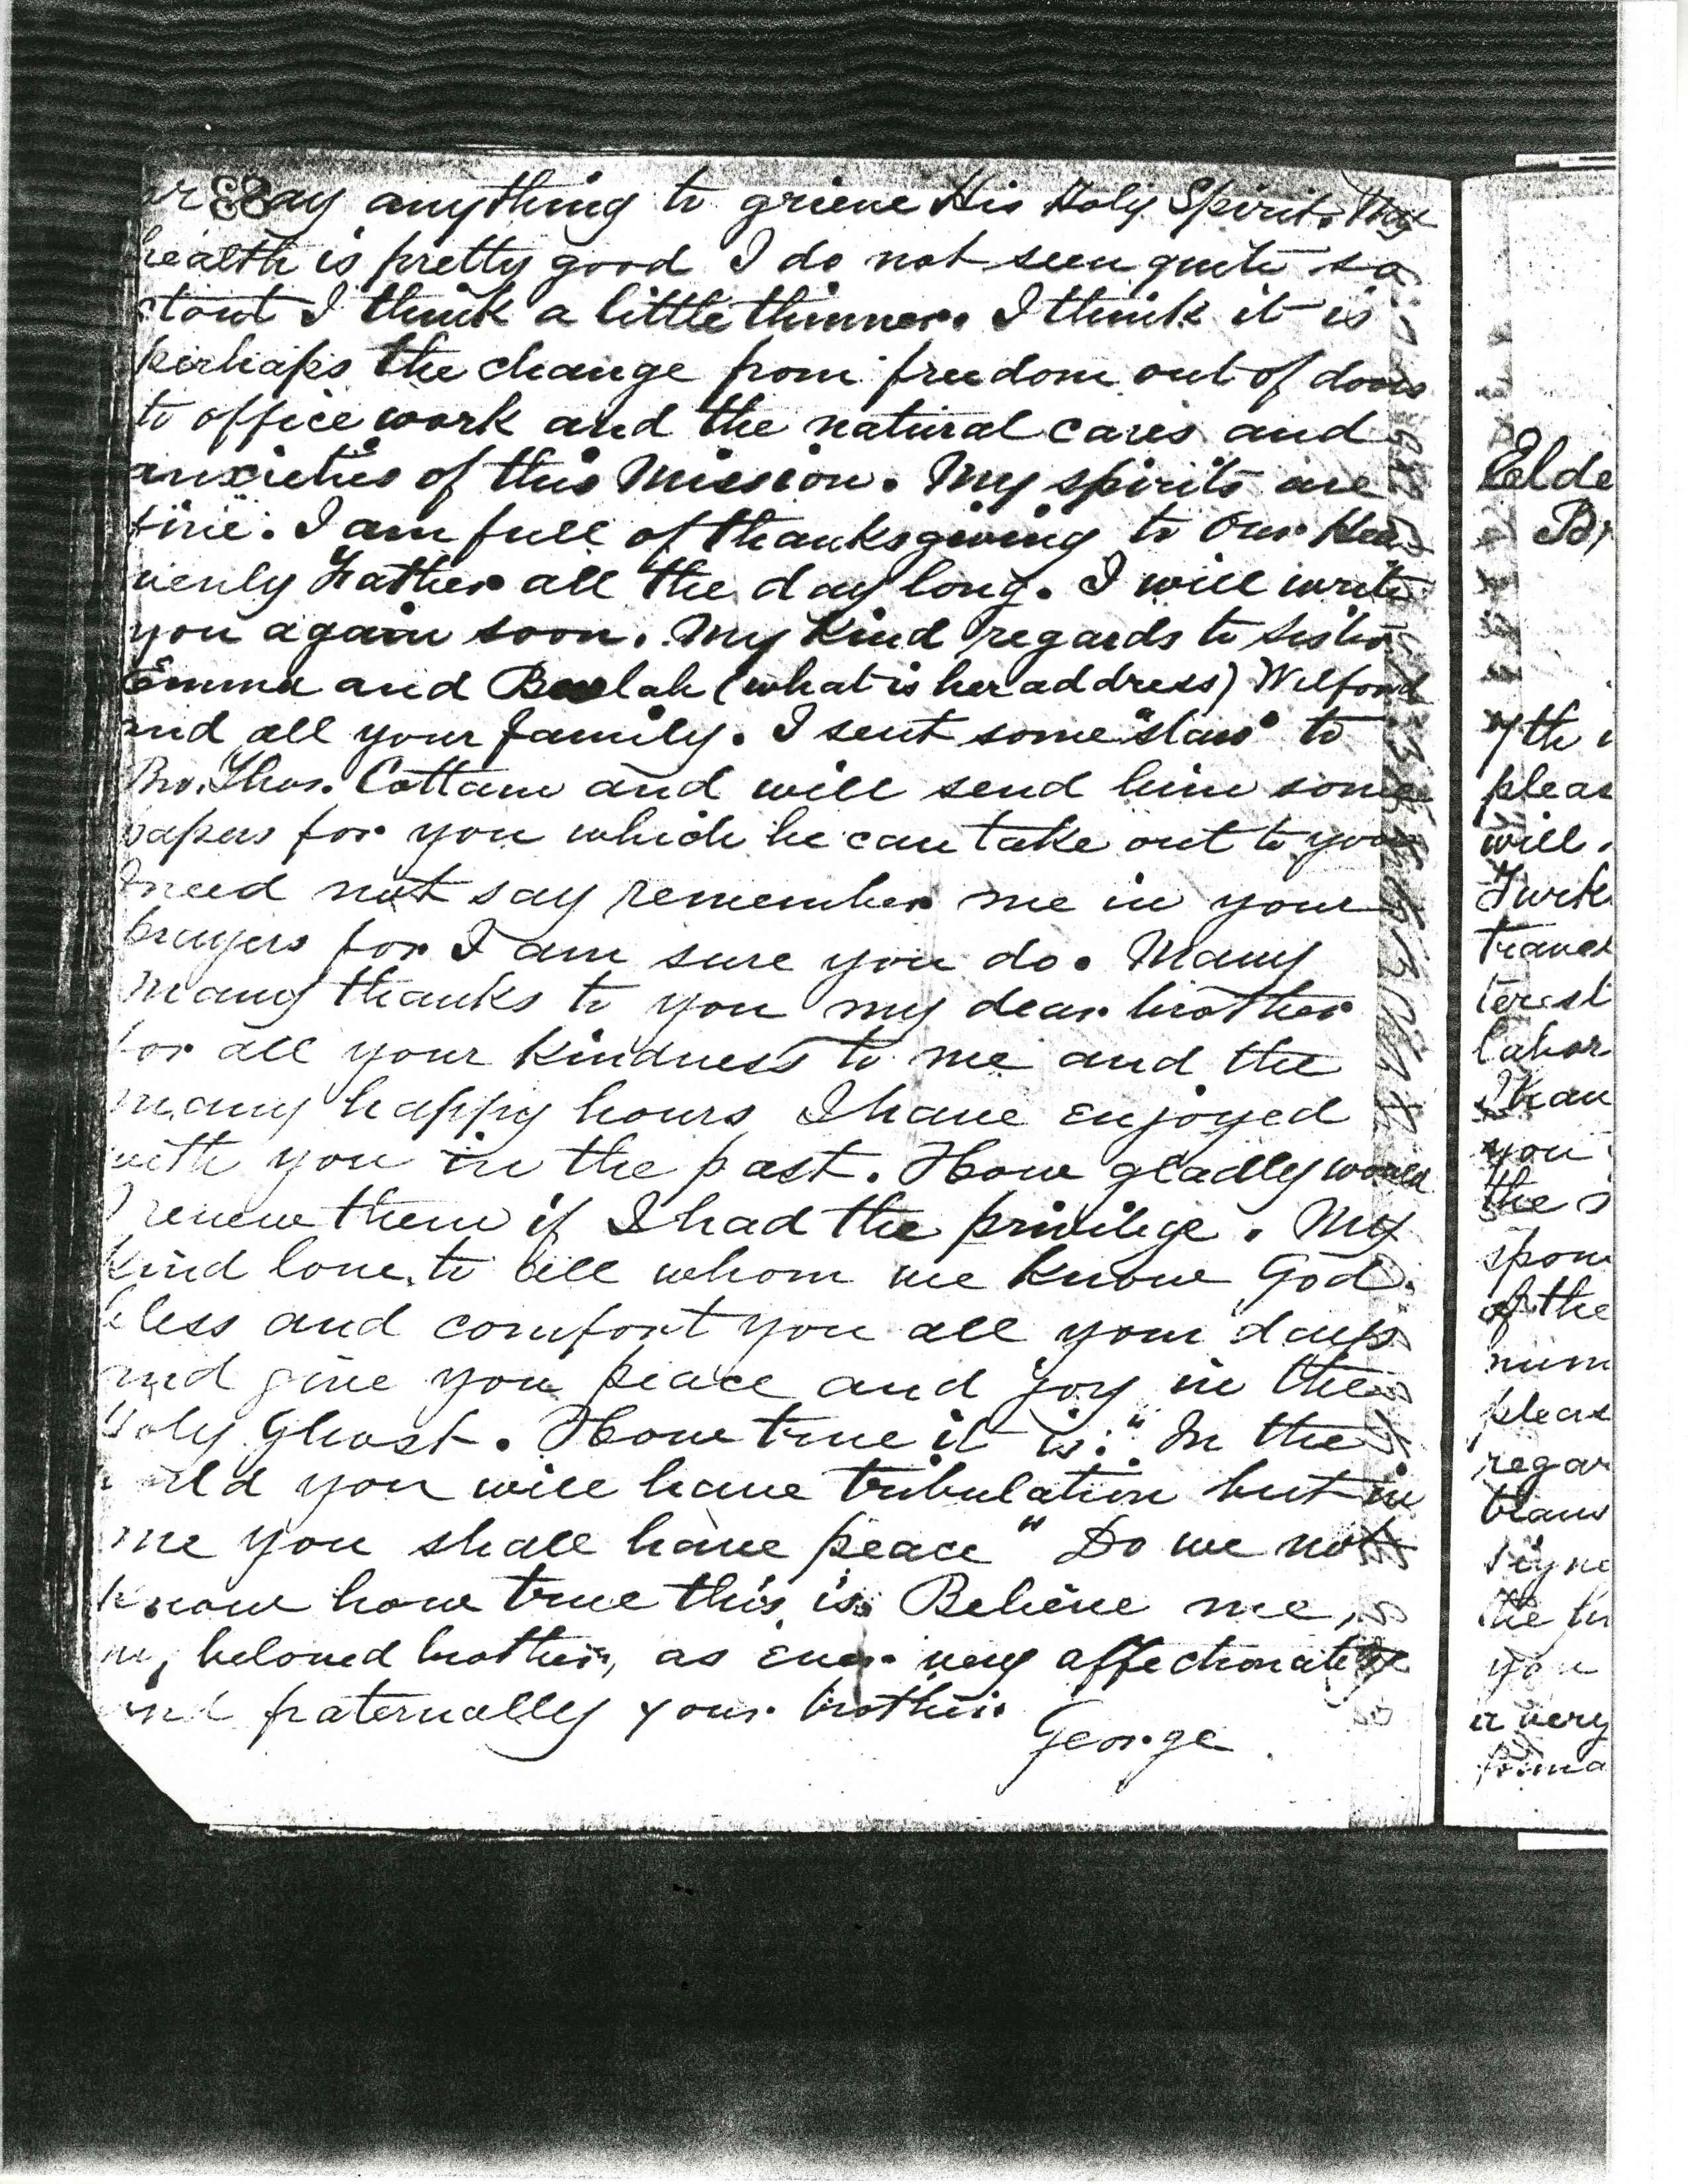 or say anything to grieve His Holy Spirit. My
health is pretty good I do not seem quite so
stout I think a little thinner. I think it is
perhaps the change from freedom out of doors
to office work and the natural cares and
anxieties of this Mission. My spirits are
fine. I am full of thanksgiving to Our Hea
venly Father all the day long. I will write
you again soon. My Kind regards to sister
Emma and Beulah (what is her address) Wilford
and all your family. I sent some "stars" to
Bro. Thos. Cottam and will send him some
papers for you which he can take out to you
I need not say remember me in your
prayers for I am sure you do. Many
many thanks to you my dear brother
for all your Kindness to me and the
many happy hours I have enjoyed
with you in the past. How gladly would
I renew them if I had the privilege. My
Kind love to all whom we Know God
bless and comfort you all your days
and give you peace and joy in the
Holy Ghost. How true it is: "In the
world you will have tribulation but in
me you shall have peace" Do we not
Know how true this is. Believe me,
my beloved brother, as ever very affectionately
and fraternally your brother
George.
Elde
Br
7th
pleas
will
travel
terest
labor
you
the s
spon
of the
num
pleas
regar
trans
signe
the
you
a very